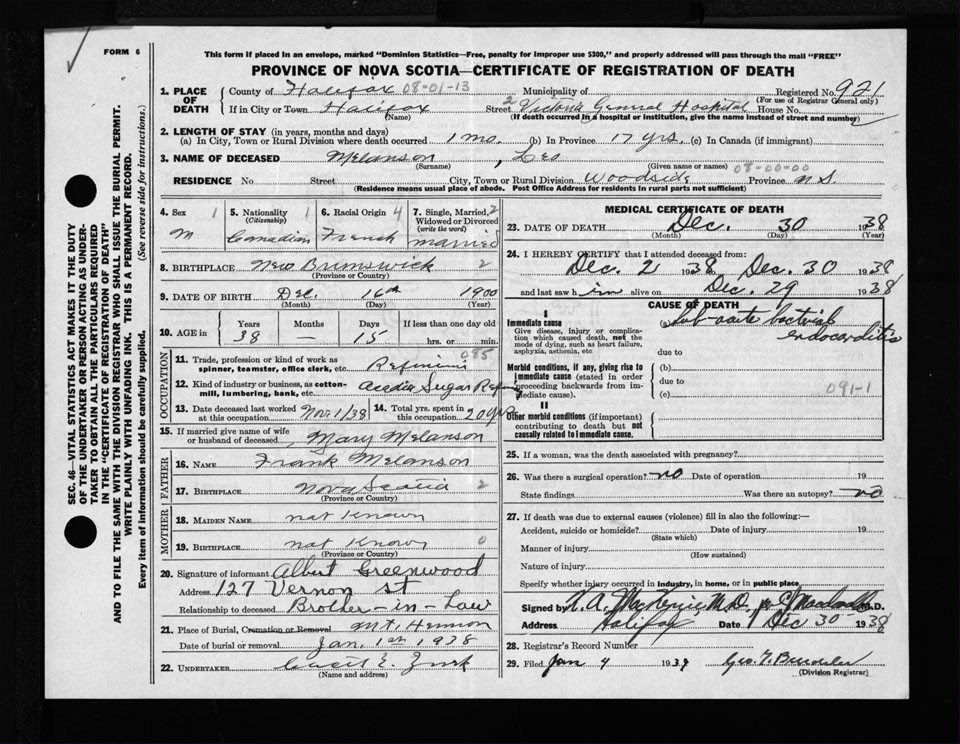 FORM 6
This form if placed in an envelope, marked "Dominion Statistics—Free, penalty for improper use $300," and properly addressed will pass through the mail "FREE"
PROVINCE OF NOVA SCOTIA—CERTIFICATE OF REGISTRATION OF DEATH
1. PLACE OF DEATH
County of Halifax 08-01-13 Municipality of Registered No. 921
(For use of Registrar General only)
If in City or Town Halifax Street 2 Victoria General Hospital House No.
(Name) (If death occurred in a hospital or institution, give the name instead of street and number)
2. LENGTH OF STAY (in years, months and days)
(a) In City, Town or Rural Division where death occurred 1 mo. (b) In Province 17 yrs. (c) In Canada (if immigrant)
3. NAME OF DECEASED Melanson, Leo
(Surname) (Given name or names) 08-00-00
RESIDENCE No. Street City, Town or Rural Division Woodside Province N.S.
(Residence means usual place of abode. Post Office Address for residents in rural parts not sufficient)
4. Sex 1
M
5. Nationality 1
(Citizenship)
Canadian
6. Racial Origin 4
French
7. Single, Married, 2
Widowed or Divorced
(write the word)
married
8. BIRTHPLACE New Brunswick 2
(Province or Country)
9. DATE OF BIRTH Dec. 16th 1900
(Month) (Day) (Year)
10. AGE in
Years Months Days If less than one day old
38 — 15 hrs. or min.
OCCUPATION
11. Trade, profession or kind of work as 085
spinner, teamster, office clerk, etc.
12. Kind of industry or business, as cotton-
mill, lumbering, bank, etc. Acadia Sugar
13. Date deceased last worked
at this occupation Nov 1/38
14. Total yrs. spent in
this occupation 20 yrs
15. If married give name of wife
or husband of deceased Mary Melanson
FATHER
16. NAME Frank Melanson
17. BIRTHPLACE Nova Scotia 2
(Province or Country)
MOTHER
18. MAIDEN NAME not known
19. BIRTHPLACE not known 0
(Province or Country)
20. Signature of informant Albert Greenwood
Address 127 Vernon St
Relationship to deceased Brother-in-Law
21. Place of Burial, Cremation or Removal Mt. Hermon
Date of burial or removal Jan. 1st 1938
22. UNDERTAKER Cecil E. Zink
(Name and address)
MEDICAL CERTIFICATE OF DEATH
23. DATE OF DEATH Dec. 30 1938
(Month) (Day) (Year)
24. I HEREBY CERTIFY that I attended deceased from:
Dec. 2 1938 Dec. 30 1938
and last saw h im alive on Dec. 29 1938
CAUSE OF DEATH
I
Immediate cause (a) Sub-acute bacterial
endocarditis
Give disease, injury or complica-
tion which caused death, not the
mode of dying, such as heart failure,
asphyxia, asthenia, etc
due to
Morbid conditions, if any, giving rise to
immediate cause (stated in order
proceeding backwards from im-
mediate cause).
(b)
due to
(c) 091-1
II
Other morbid conditions (if important)
contributing to death but not
causally related to immediate cause.
25. If a woman, was the death associated with pregnancy?
26. Was there a surgical operation? no Date of operation 19
State findings Was there an autopsy? no
27. If death was due to external causes (violence) fill in also the following:—
Accident, suicide or homicide? Date of injury 19
(State which)
Manner of injury
(How sustained)
Nature of injury
Specify whether injury occurred in industry, in home, or in public place
Signed by K. A. MacKenzie M.D. M.D.
Address Halifax Date Dec 30 1938
28. Registrar's Record Number
29. Filed Jan 4 1939 Geo. 
(Division Registrar)
SEC. 46—VITAL STATISTICS ACT MAKES IT THE DUTY
OF THE UNDERTAKER OR PERSON ACTING AS UNDER-
TAKER TO OBTAIN ALL THE PARTICULARS REQUIRED
IN THE "CERTIFICATE OF REGISTRATION OF DEATH"
AND TO FILE THE SAME WITH THE DIVISION REGISTRAR WHO SHALL ISSUE THE BURIAL PERMIT.
WRITE PLAINLY WITH UNFADING INK. THIS IS A PERMANENT RECORD.
Every item of information should be carefully supplied. (See reverse side for instructions.)